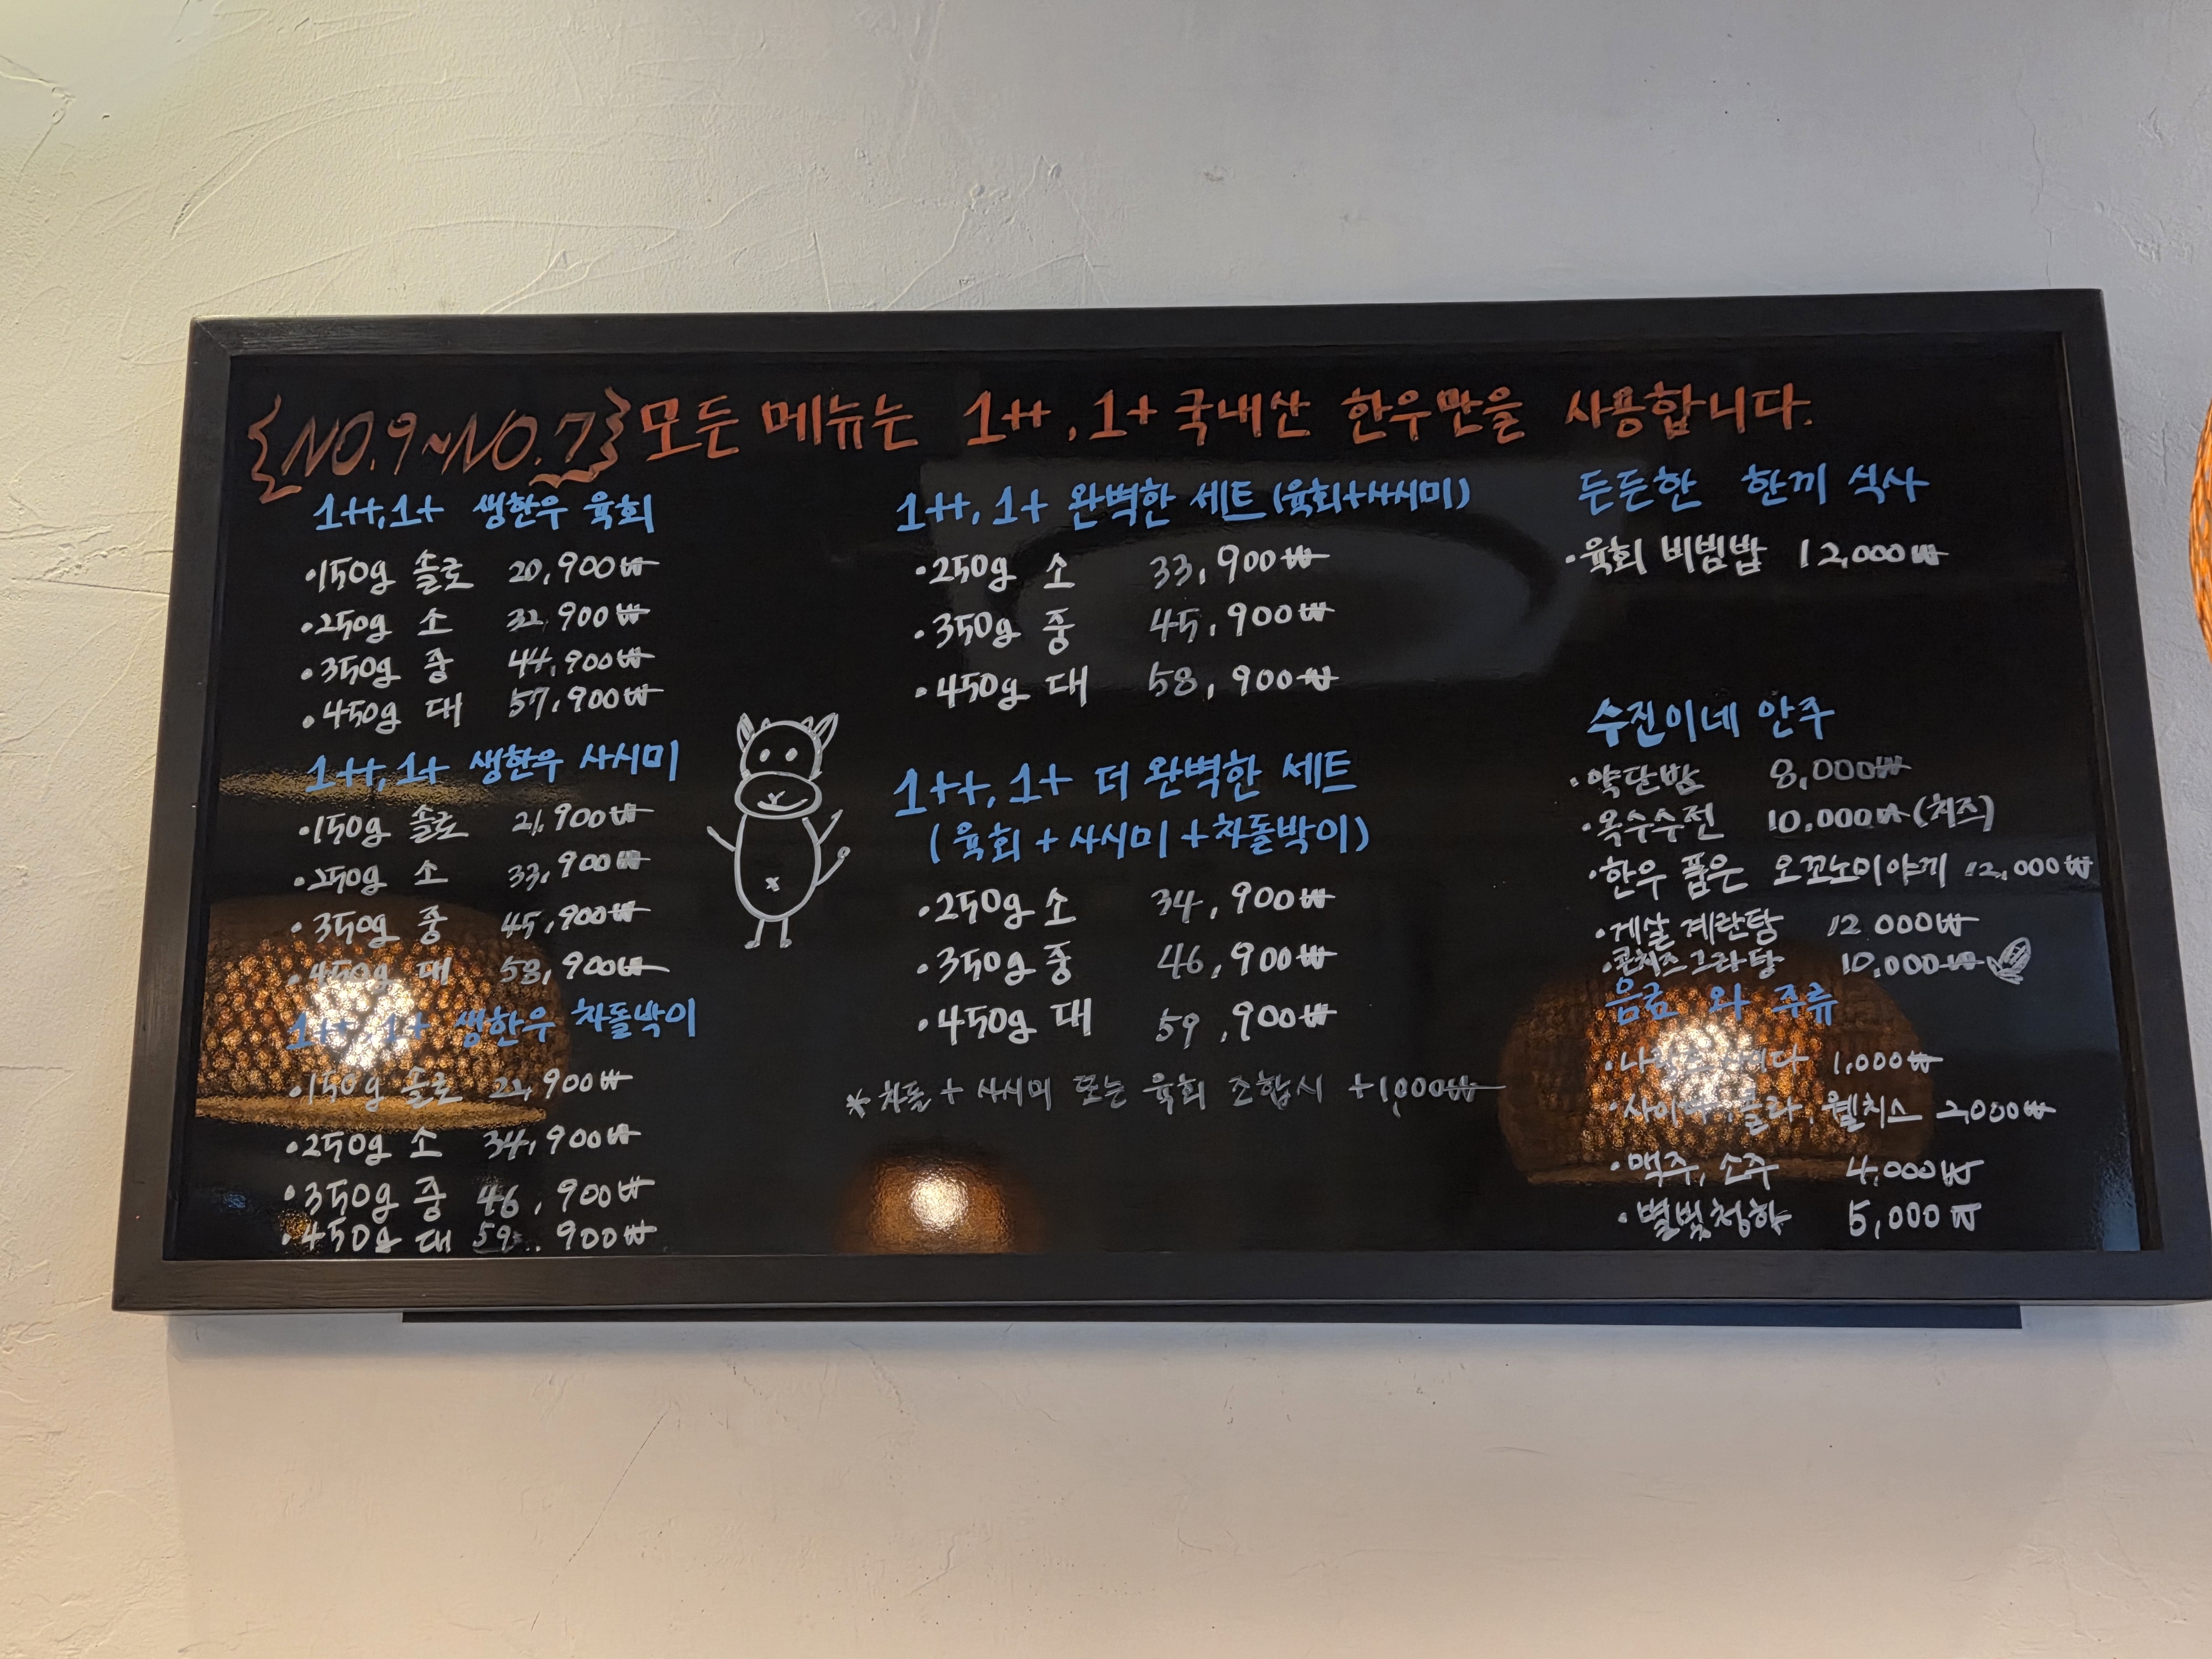 {NO.9~NO.7} 모든 메뉴는 1++, 1+ 국내산 한우만을 사용합니다.
1++, 1+ 생한우 육회
·150g 솔로 20,900₩
·250g 소 32,900₩
·350g 중 44,900₩
·450g 대 57,900₩
1++, 1+ 생한우 사시미
·150g 솔로 21,900₩
·250g 소 33,900₩
·350g 중 45,900₩
·450g 대 58,900₩
1++, 1+ 생한우 차돌박이
·150g 솔로 22,900₩
·250g 소 34,900₩
·350g 중 46,900₩
·450g 대 59,900₩
1++, 1+ 완벽한 세트 (육회+사시미)
·250g 소 33,900₩
·350g 중 45,900₩
·450g 대 58,900₩
1++, 1+ 더 완벽한 세트
(육회+사시미+차돌박이)
·250g 소 34,900₩
·350g 중 46,900₩
·450g 대 59,900₩
*차돌+사시미 또는 육회 조합시 +1,000₩
든든한 한끼 식사
·육회 비빔밥 12,000₩
수진이네 안주
·약단밤 8,000₩
·옥수수전 10,000₩ (치즈)
·한우 품은 오꼬노미야끼 12,000₩
·게살 계란탕 12,000₩
·콘치즈그라탕 10,000₩
음료 와 주류
·나랑드사이다 1,000₩
·사이다, 콜라, 웰치스 2,000₩
·맥주, 소주 4,000₩
·별빛청하 5,000₩